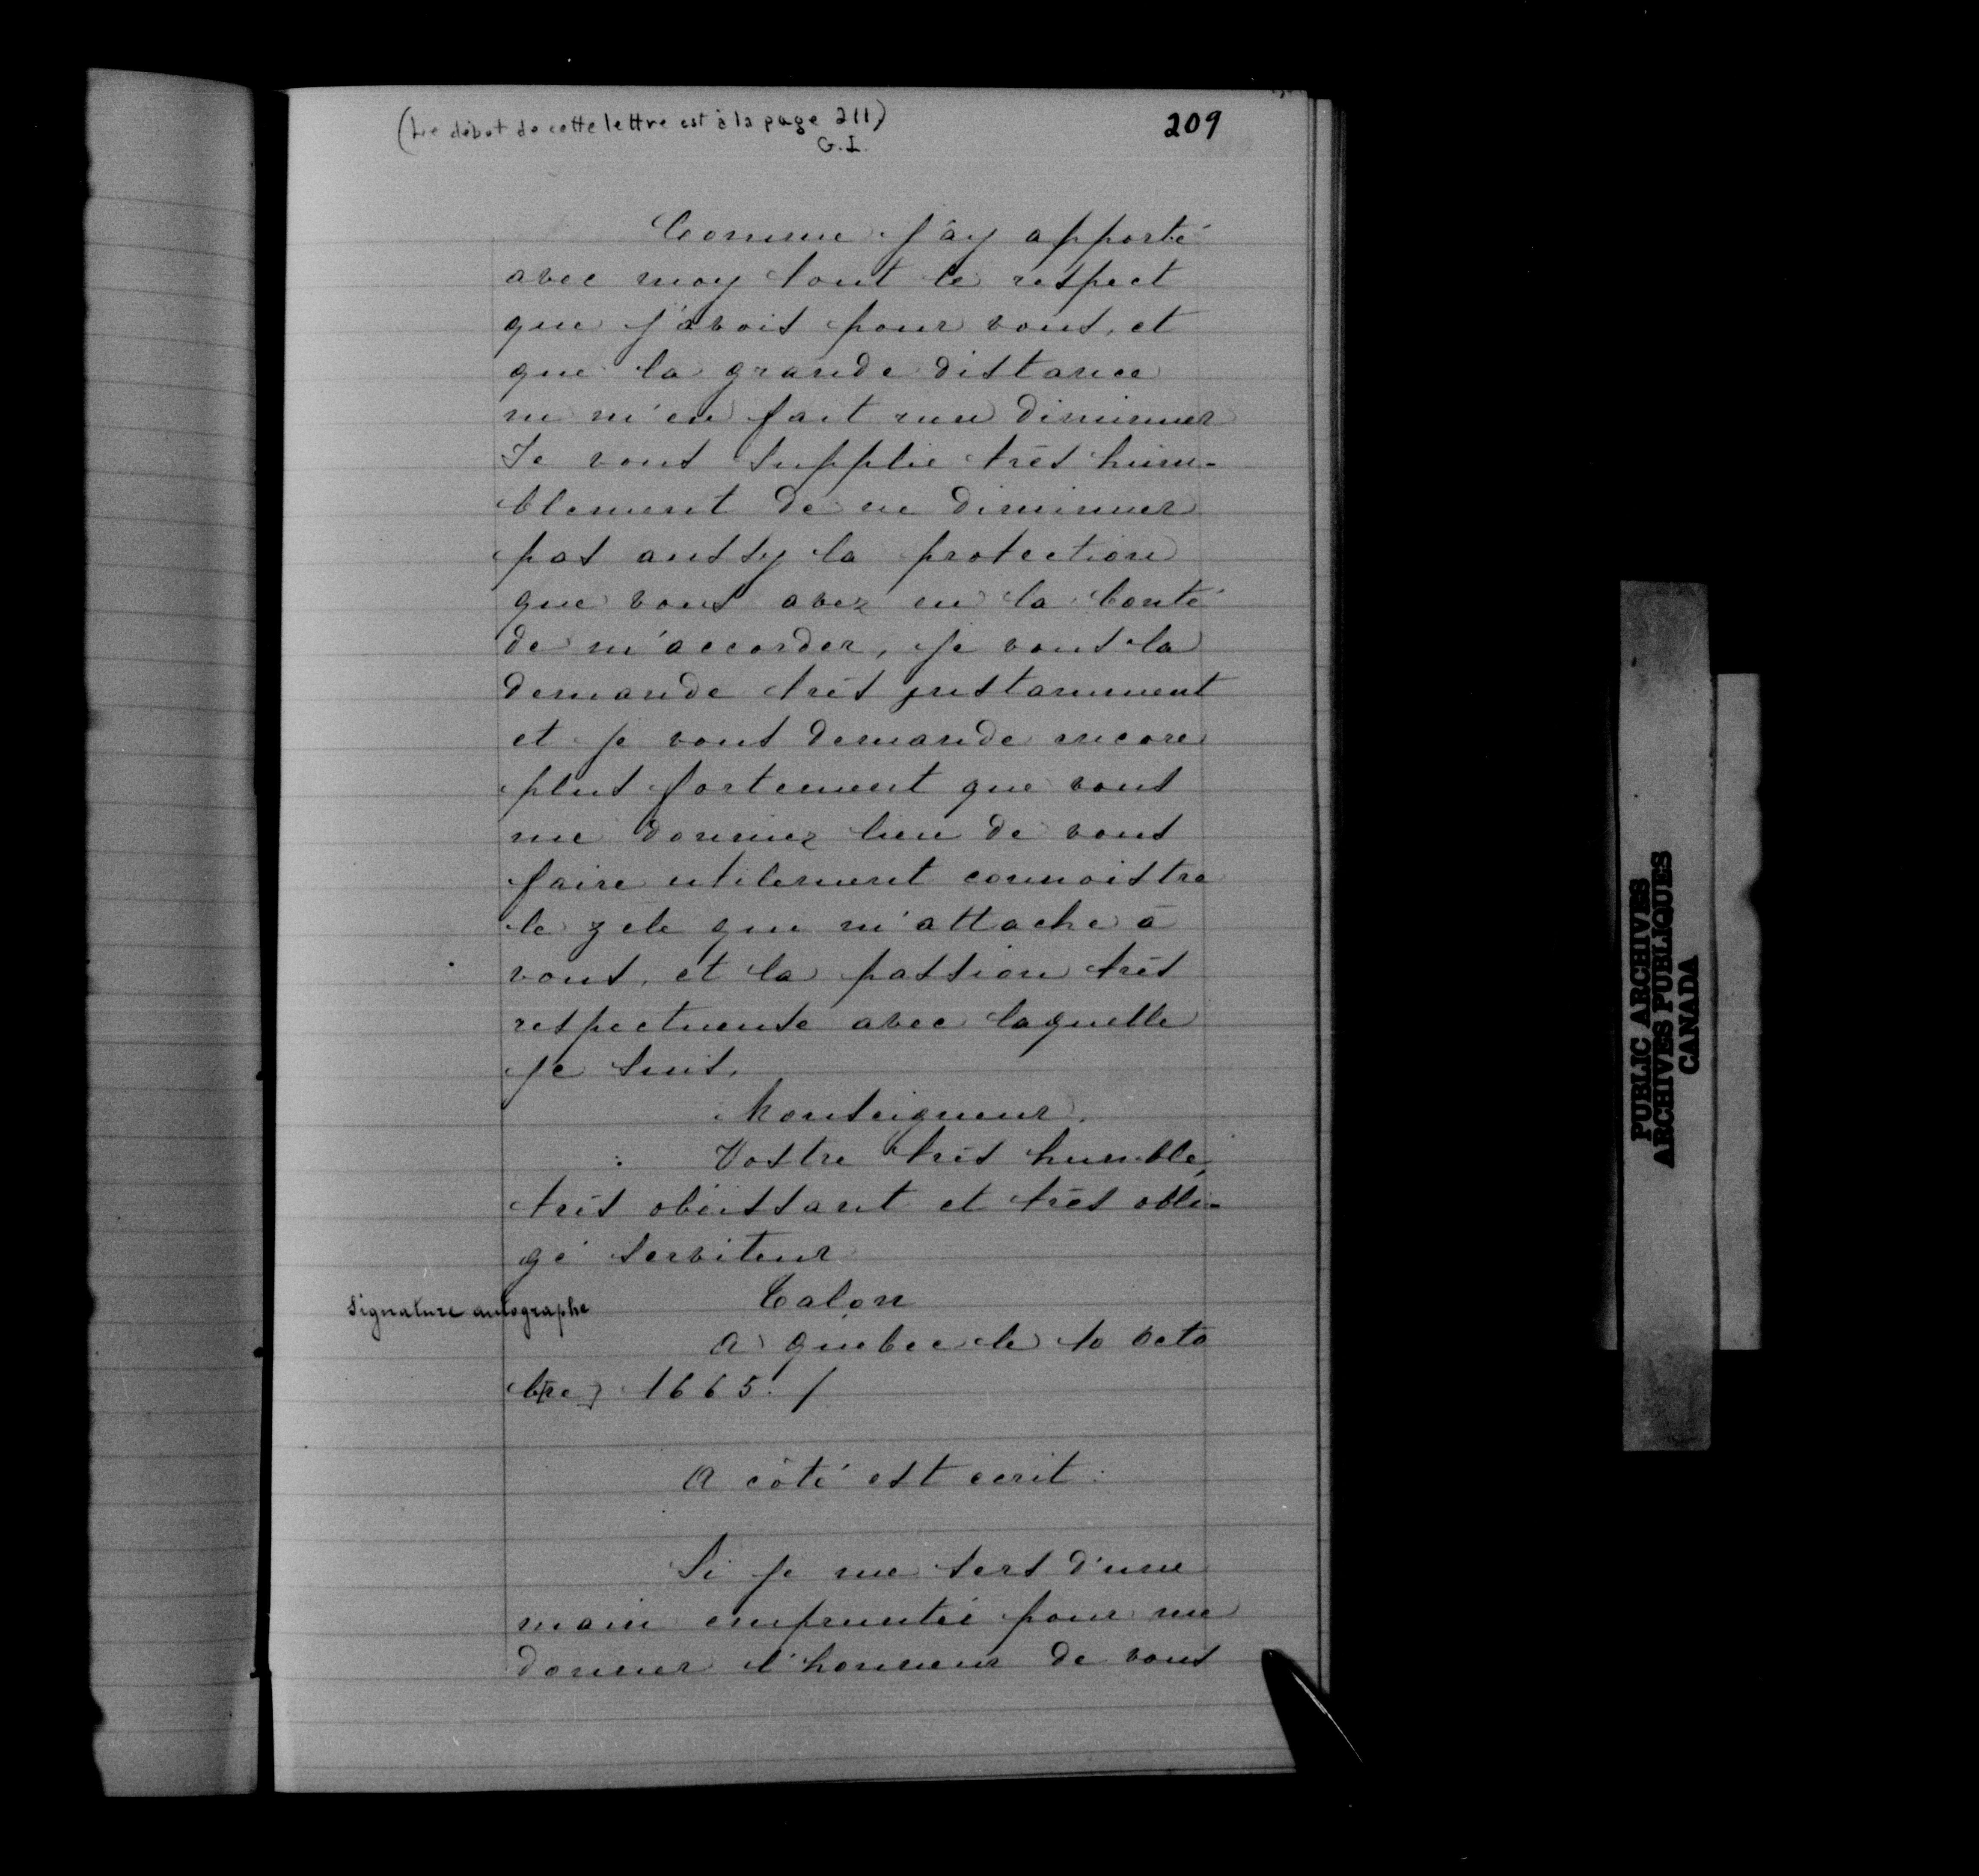 (Le débot de cette lettre est à la page 211)
G.I.
209
Comme j'ay apporté
avec moy tout le respect
que j'avois pour vous, et
que la grande distance
ne m'en fait rien diminuer
Je vous supplie très hum-
blement de ne diminuer
pas aussy la protection
que vous avez eu la bonté
de m'accorder, je vous la
demande très justamment
et je vous demande encore
plus fortement que vous
me donniez lieu de vous
faire utilement connoistre
le zele que m'attache à
vous, et la passion très
respectueuse avec laquelle
je suis,
Monseigneur,
Vostre très humble,
très obéissant et très obli-
gé serviteur
Signature autographe
Talon
A quebec le 10 octo
b[re] 1665. /
A côté est ecrit :
Si je me sers d'une
main empruntée pour me
donner l'honneur de vous
PUBLIC ARCHIVES
ARCHIVES PUBLIQUES
CANADA